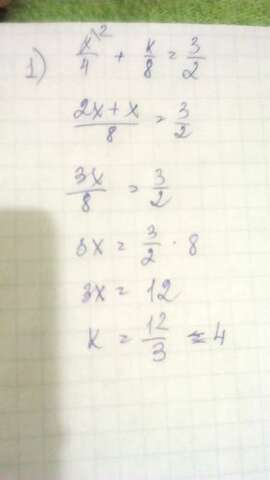 1) x\2/4 + x/8 = 3/2
2x+x/8 = 3/2
3x/8 = 3/2
3x = 3/2 · 8
3x = 12
x = 12/3 = 4